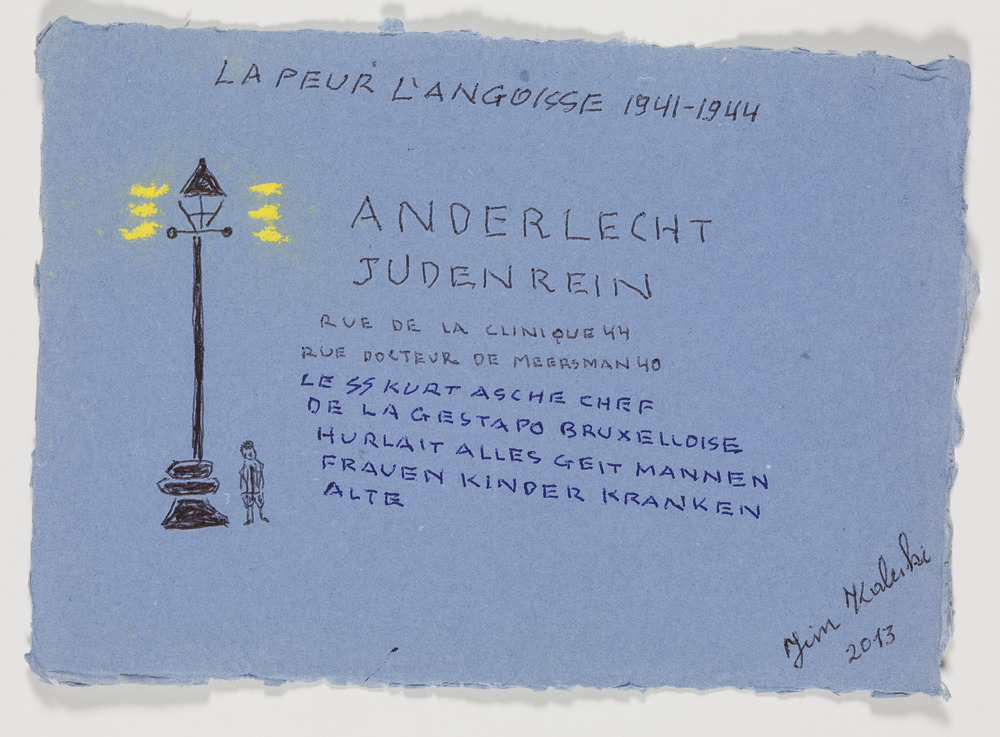 LA PEUR L'ANGOISSE 1941-1944
ANDERLECHT
JUDENREIN
RUE DE LA CLINIQUE 44
RUE DOCTEUR DE MEERSMAN 40
LE SS KURT ASCHE CHEF
DE LA GESTAPO BRUXELLOISE
HURLAIT ALLES GEIT MANNEN
FRAUEN KINDER KRANKEN
ALTE
Jim Kaliski
2013